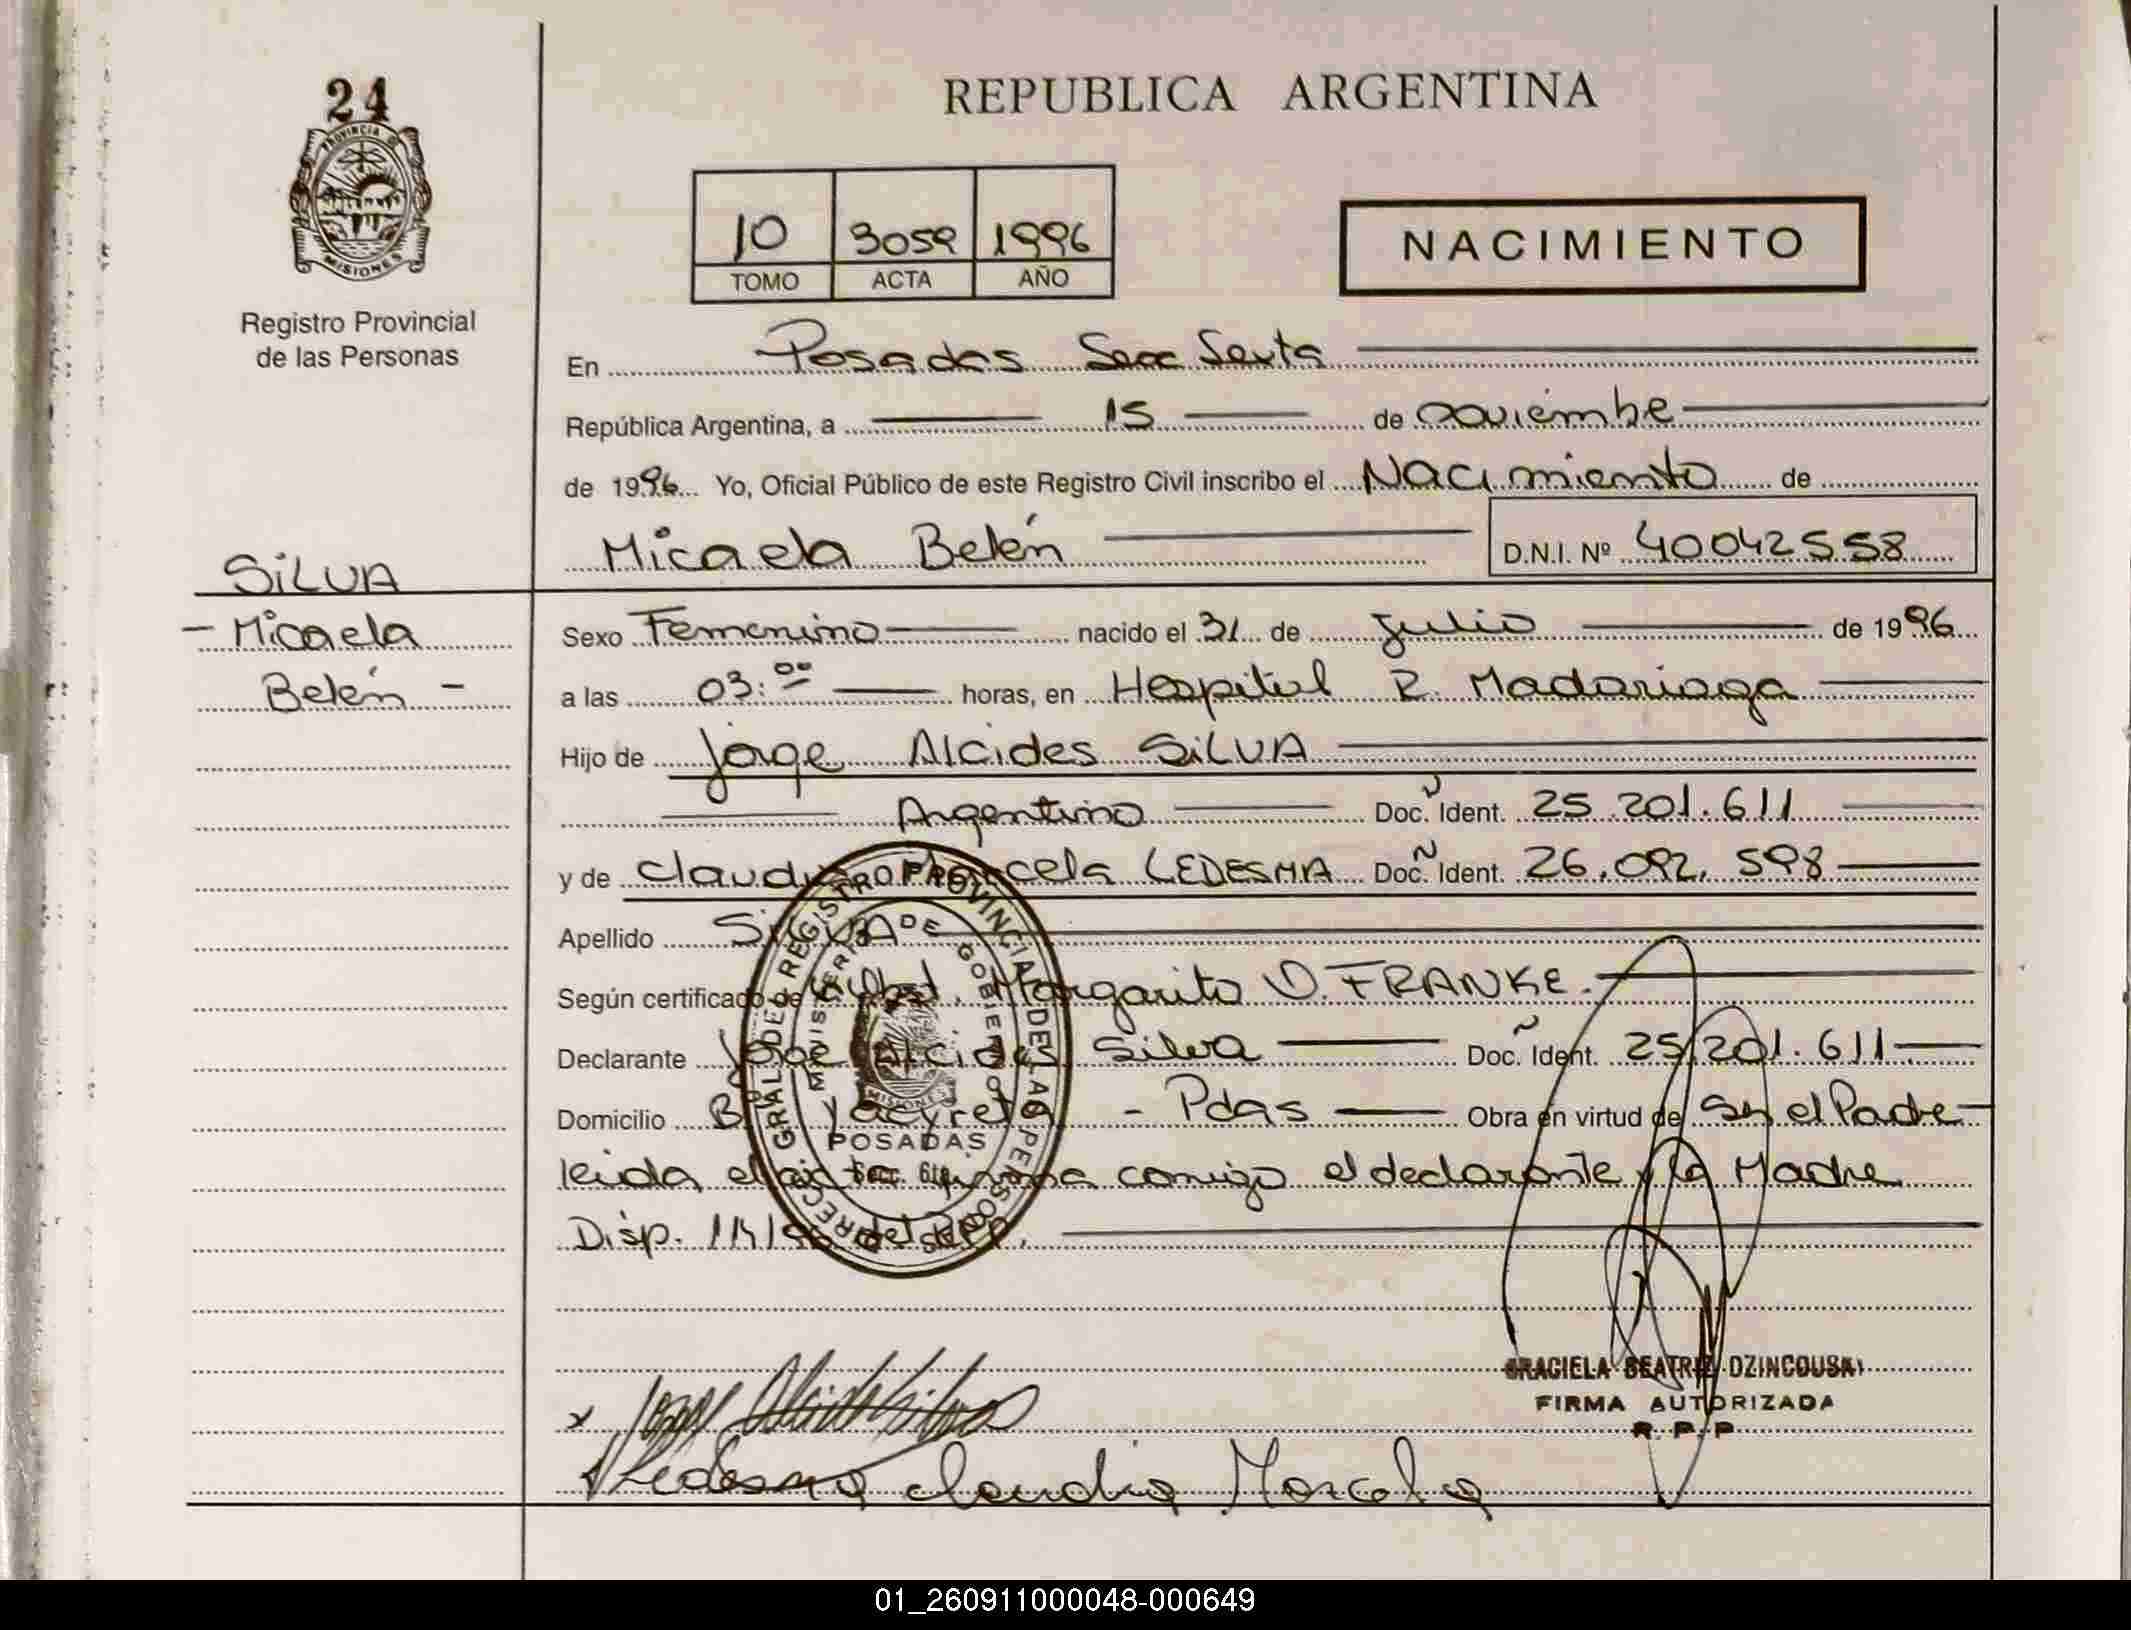 24
REPUBLICA ARGENTINA
PROVINCIA DE
MISIONES
Registro Provincial
de las Personas
10 3059 1996
TOMO ACTA AÑO
NACIMIENTO
En Posadas Secc Sexta
República Argentina, a 15 de noviembre
de 1996 Yo, Oficial Público de este Registro Civil inscribo el Nacimiento de
Micaela Belén D.N.I. Nº 40042558
SILVA
- Micaela
Belén -
Sexo Femenino nacido el 31 de julio de 1996
a las 03:00 horas, en Hospital R. Madariaga
Hijo de Jorge Alcides SILVA
Argentino Doc. Ident. 25.201.611
y de Claudia Marcela LEDESMA Doc. Ident. 26.092.598
Apellido SILVA
Según certificado de Obst. Margarita D. FRANKE.
Declarante Jorge Alcides Silva Doc. Ident. 25.201.611
Domicilio Bº Yacyreta - Pdas Obra en virtud de Ser el Padre
leida el acta firma conmigo el declarante y la Madre
Disp. del R.P.P.
DIRECC. GRAL. DEL REGISTRO PROVINCIAL DE LAS PERSONAS
MINISTERIO DE GOBIERNO
MISIONES
POSADAS
Secc. 6ta.
GRACIELA BEATRIZ DZINCOUSKI
FIRMA AUTORIZADA
R.P.P
x Jorge Alcides Silva
Ledesma Claudia Marcela
01_260911000048-000649